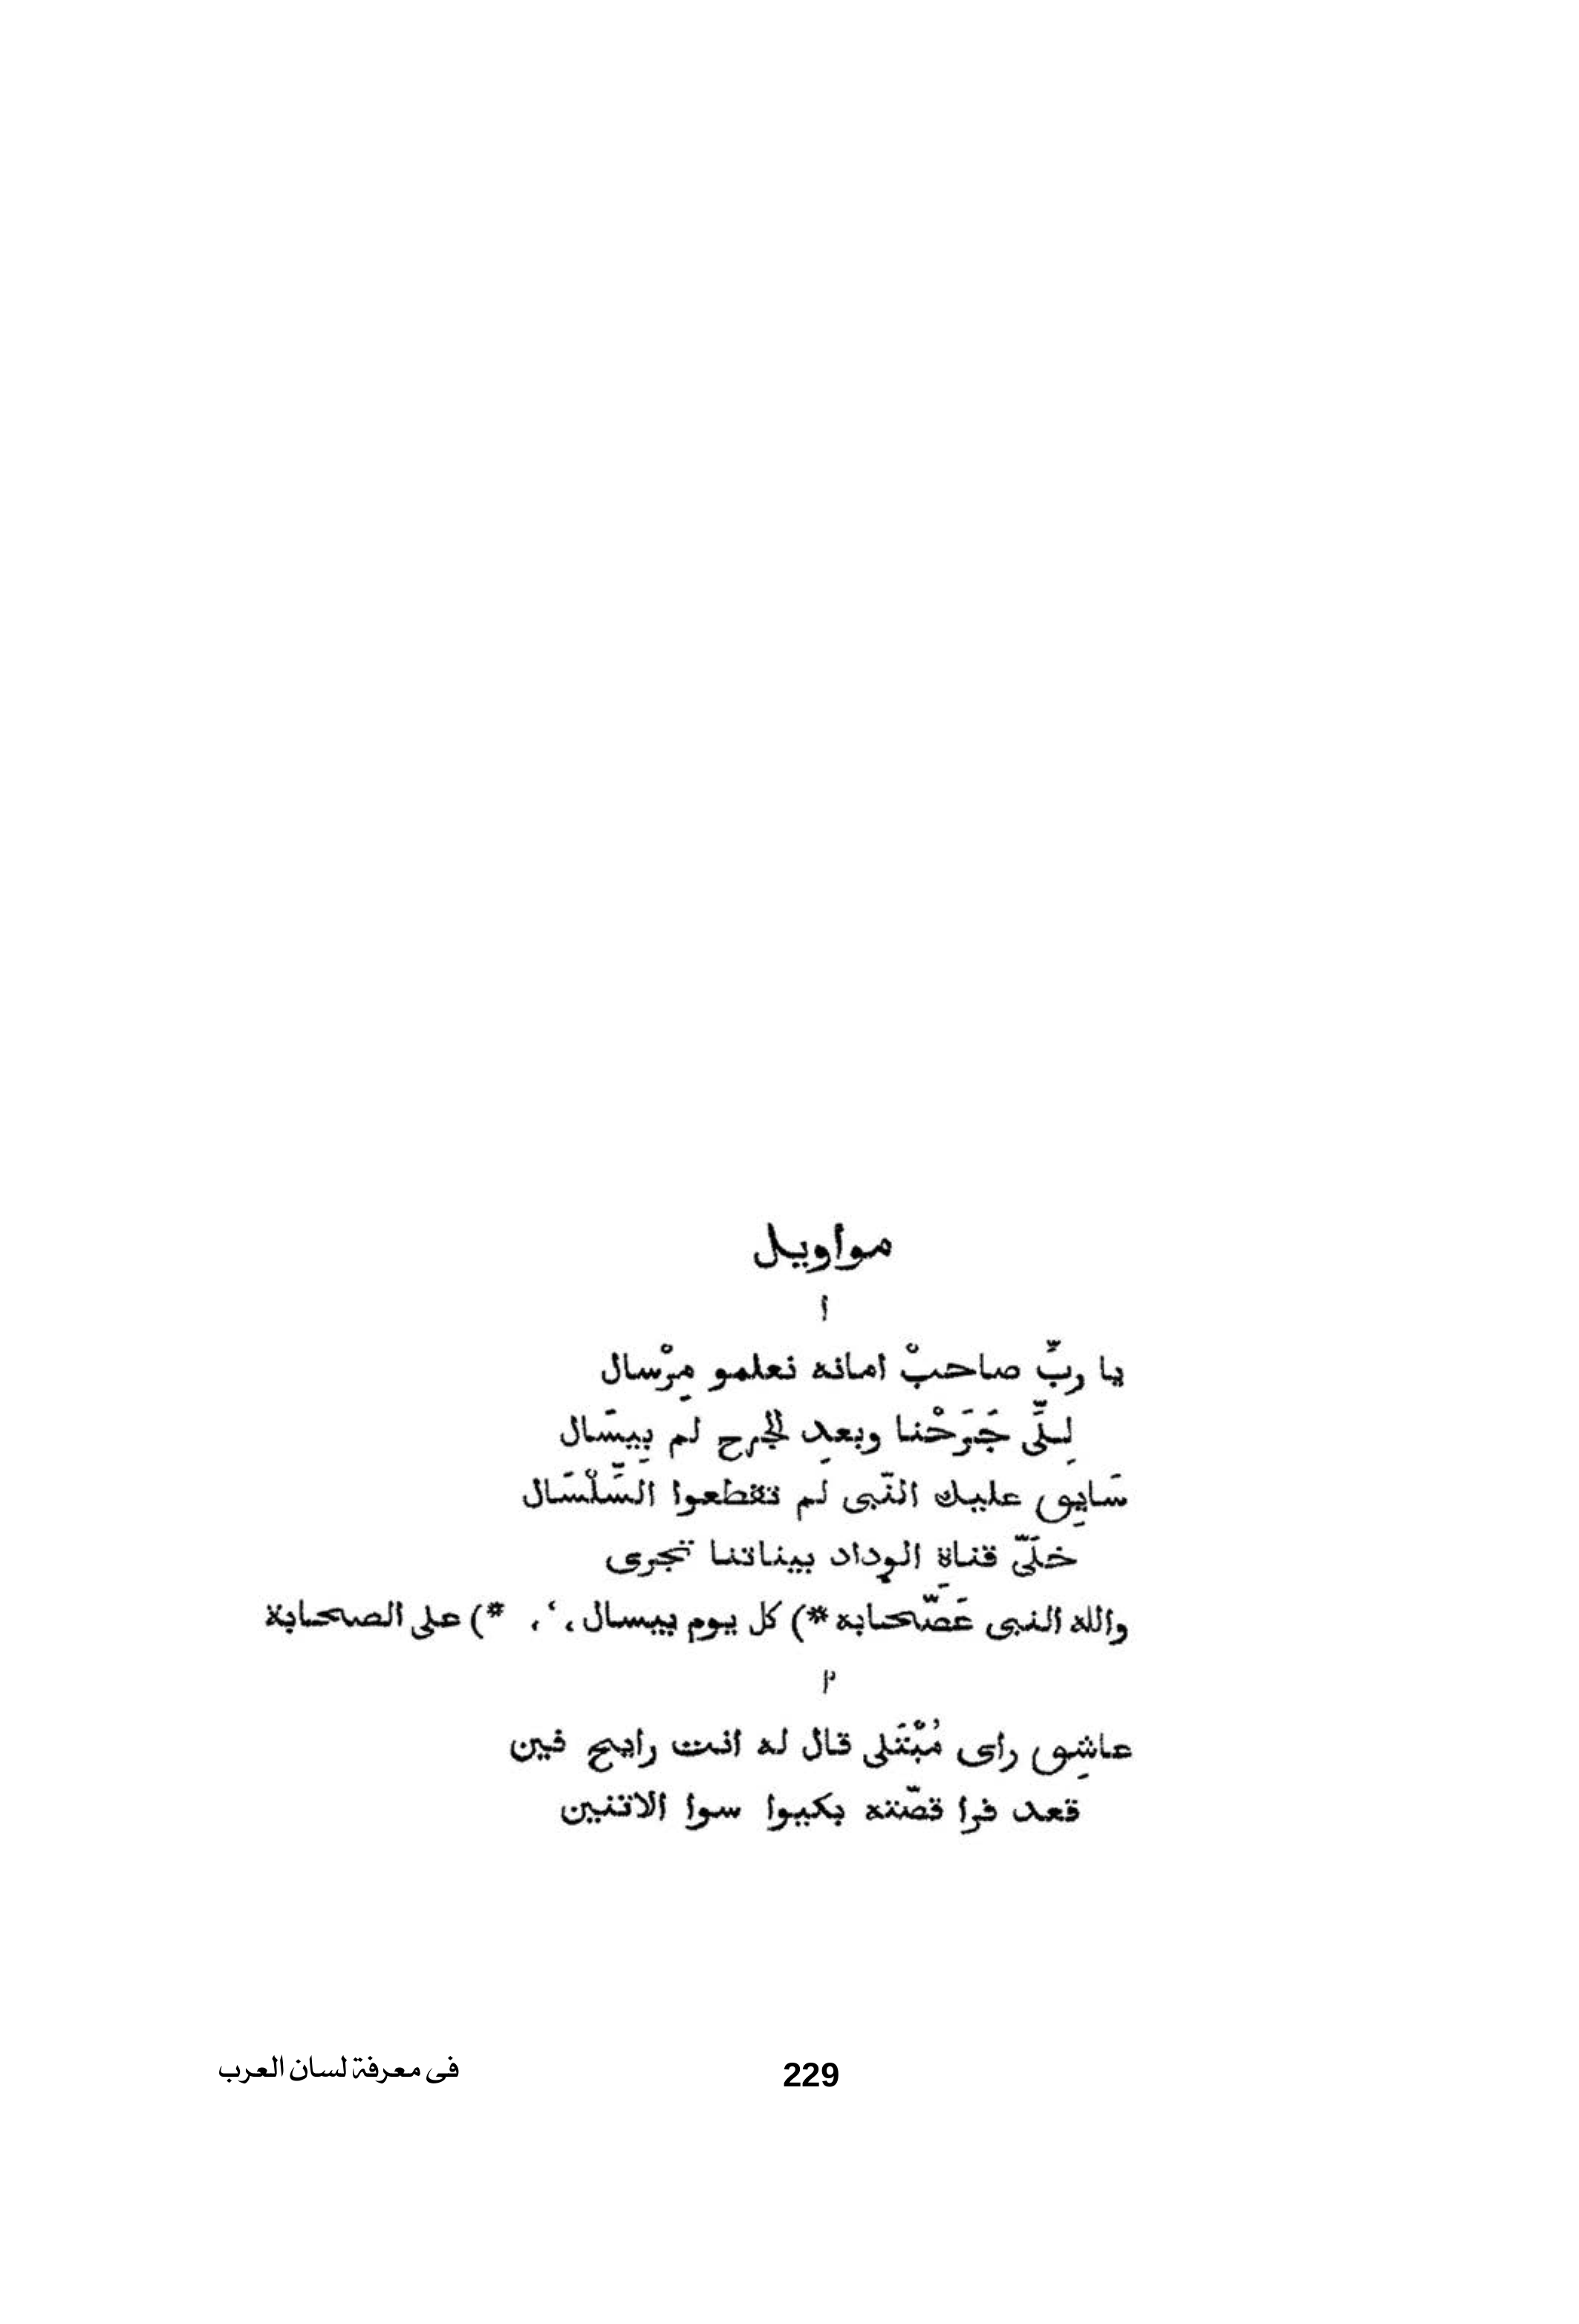 مواويل
١
يا ربِّ صاحبْ امانه نعلمو مِرْسال
لِلِّى جَرَحْنا وبعدِ الجرح لم بِيسَال
سَايِق عليك النّبى لم تقطعوا السِّلْسَال
خلّىَ قناةِ الوِداد بيناتنا تجرى
والله النبى عَصّحابه*) كل يوم ييسال ،‘، *) على الصحابة
٢
عاشِق راى مُبْتَلى قال له انت رايح فين
قعد قرا قصّته بكيوا سوا الاتنين
فى معرفة لسان العرب
229